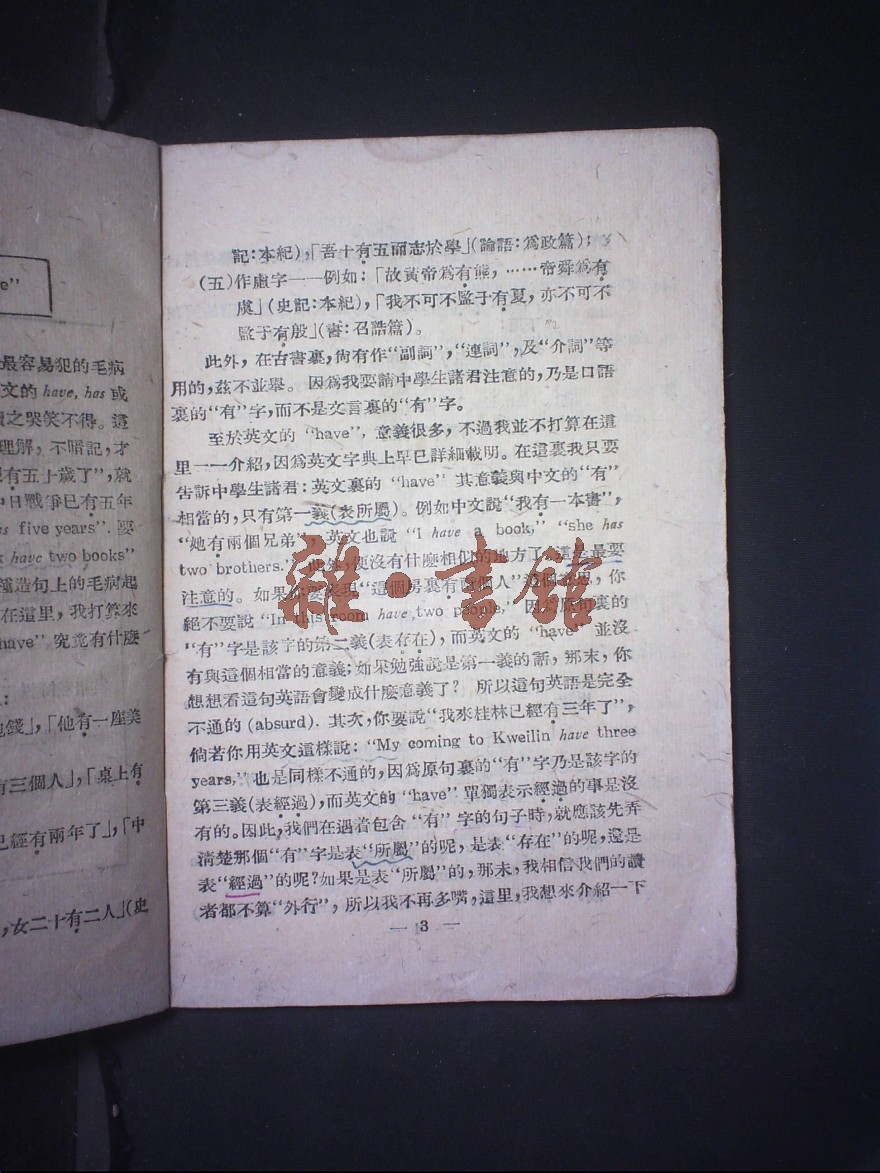 e”
最容易犯的毛病
文的 have, has 或
讀之哭笑不得。這
理解，不暗記，才
有五十歲了”，就
中日戰爭已有五年
s five years”. 要
k have two books”
種造句上的毛病起
在這里，我打算來
have”究竟有什麼
：
錢」，「他有一座美
有三個人」，「桌上有
已經有兩年了」，「中
，女二十有二人」(史
記：本紀)，「吾十有五而志於學」(論語：爲政篇)；
(五)作虛字——例如：「故黃帝爲有熊，……帝舜爲有
虞」(史記：本紀)，「我不可不監于有夏，亦不可不
監于有殷」(書：召誥篇)。
此外，在古書裏，尙有作“副詞”，“連詞”，及“介詞”等
用的，茲不並舉。因爲我要請中學生諸君注意的，乃是口語
裏的“有”字，而不是文言裏的“有”字。
至於英文的 “have”，意義很多，不過我並不打算在這
里一一介紹，因爲英文字典上早已詳細載明。在這裏我只要
告訴中學生諸君：英文裏的 “have” 其意義與中文的“有”
相當的，只有第一義(表所屬)。例如中文說“我有一本書”，
“她有兩個兄弟”，英文也說 “I have a book,” “she has
two brothers.” 此外，便沒有什麼相似的地方了。這是最要
注意的。如果你要表現“這個房裏有兩個人”這個意思，你
絕不要說 “In this room have two people,” 因爲原句裏的
“有”字是該字的第二義(表存在)，而英文的 “have” 並沒
有與這個相當的意義；如果勉強說是第一義的話，那末，你
想想看這句英語會變成什麼意義了？ 所以這句英語是完全
不通的 (absurd). 其次，你要說“我來桂林已經有三年了”，
倘若你用英文這樣說： “My coming to Kweilin have three
years,” 也是同樣不通的，因爲原句裏的“有”字乃是該字的
第三義(表經過)，而英文的 “have” 單獨表示經過的事是沒
有的。因此，我們在遇着包含 “有” 字的句子時，就應該先弄
清楚那個“有”字是表“所屬”的呢，是表“存在”的呢，還是
表“經過”的呢？如果是表“所屬”的，那末，我相信我們的讀
者都不算“外行”，所以我不再多嘴，這里，我想來介紹一下
— 3 —
雜·書館